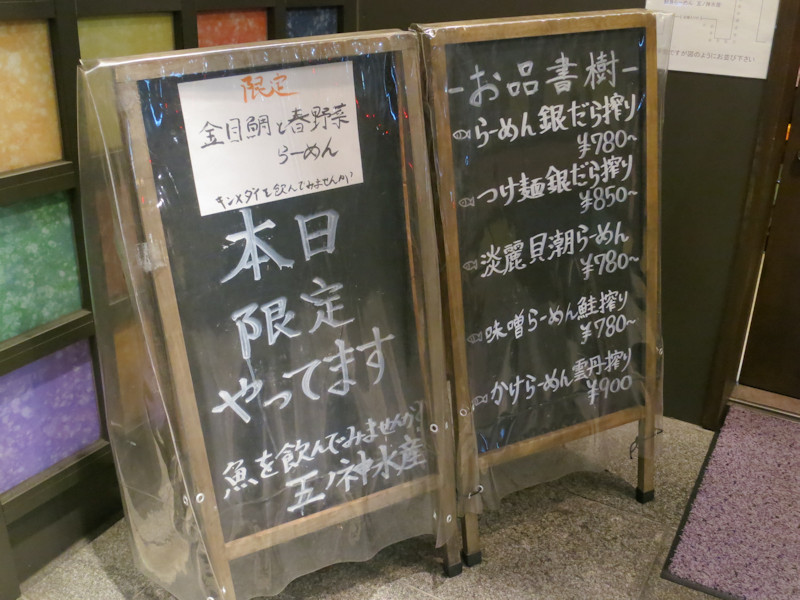 限定
金目鯛と春野菜
らーめん
キンメダイを飲んでみませんか?
本日
限定
やってます
魚を飲んでみませんか?
五ノ神水産
-お品書樹-
らーめん銀だら搾り
¥780~
つけ麺銀だら搾り
¥850~
淡麗貝潮らーめん
¥780~
味噌らーめん鮭搾り
¥780~
かけらーめん雲丹搾り
¥900